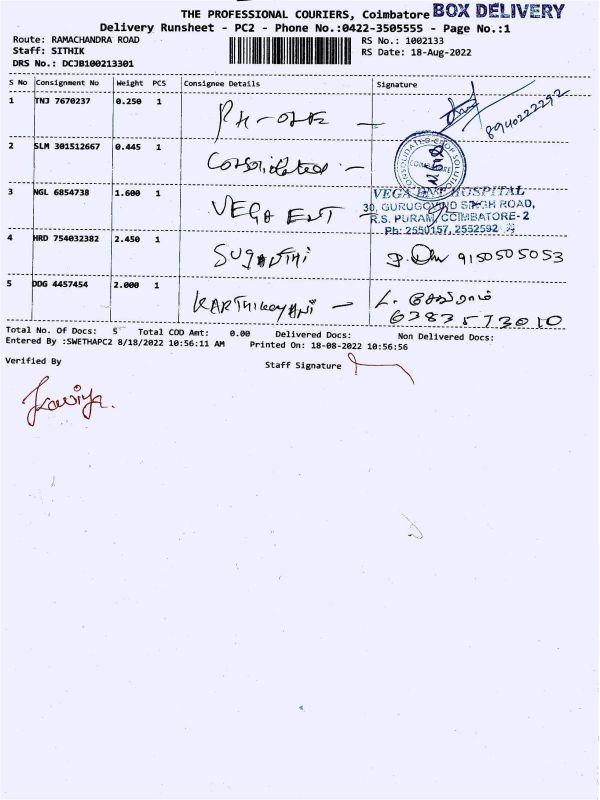 THE PROFESSIONAL COURIERS, Coimbatore BOX DELIVERY
Delivery Runsheet - PC2 - Phone No.:0422-3505555 - Page No.:1
Route: RAMACHANDRA ROAD RS No.: 1002133
Staff: SITHIK RS Date: 18-Aug-2022
DRS No.: DCJB100213301
S No Consignment No Weight PCS Consignee Details Signature
1 TNJ 7670237 0.250 1 8940222292
2 SLM 301512667 0.445 1 Consolidated -
COIMBATORE
3 NGL 6854738 1.600 1 VEGA ENT - VEGA ENT HOSPITAL
30, GURUGOVIND SINGH ROAD,
R.S. PURAM, COIMBATORE- 2
Ph: 2550157, 2552592
4 HRD 754032382 2.450 1 SUGANTHI 9150505053
5 DDG 4457454 2.000 1 KARTHIKAYANI -
6383573010
Total No. Of Docs: 5 Total COD Amt: 0.00 Delivered Docs: Non Delivered Docs:
Entered By :SWETHAPC2 8/18/2022 10:56:11 AM Printed On: 18-08-2022 10:56:56
Verified By Staff Signature
Kaviya.